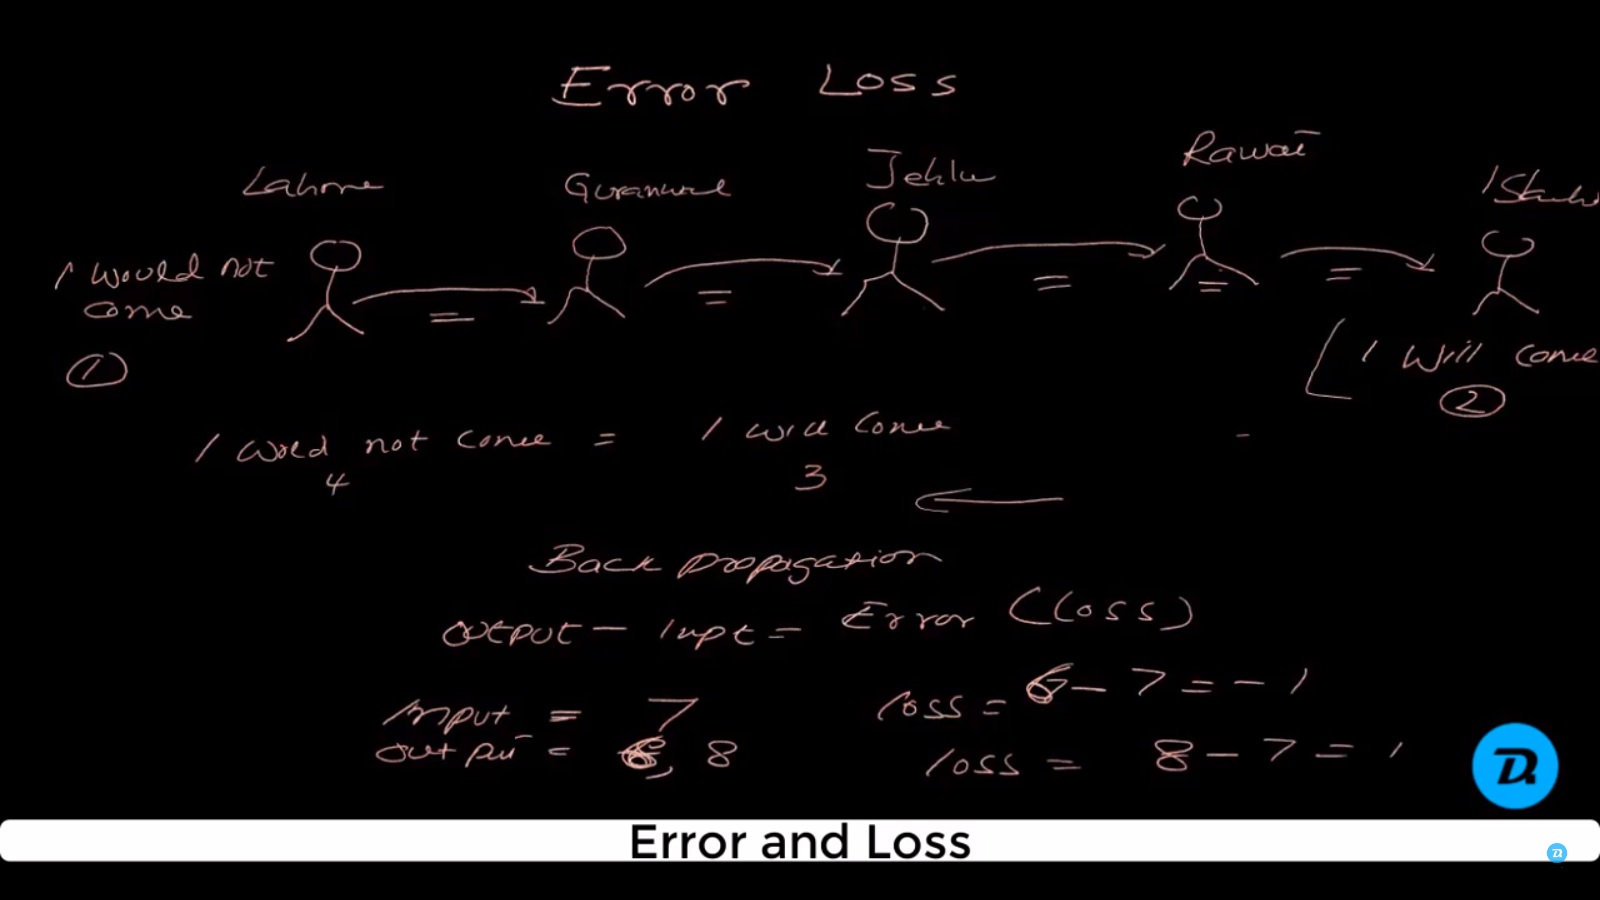 Error Loss
Lahore
Jehlu
Rawat
I would not
come
1
I will come
2
I woed not come = I will come
4 3
Back propagation
output - Inpt = Error (Loss)
Input = 7
output = 6, 8
loss = 6 - 7 = - 1
loss = 8 - 7 = 1
Error and Loss